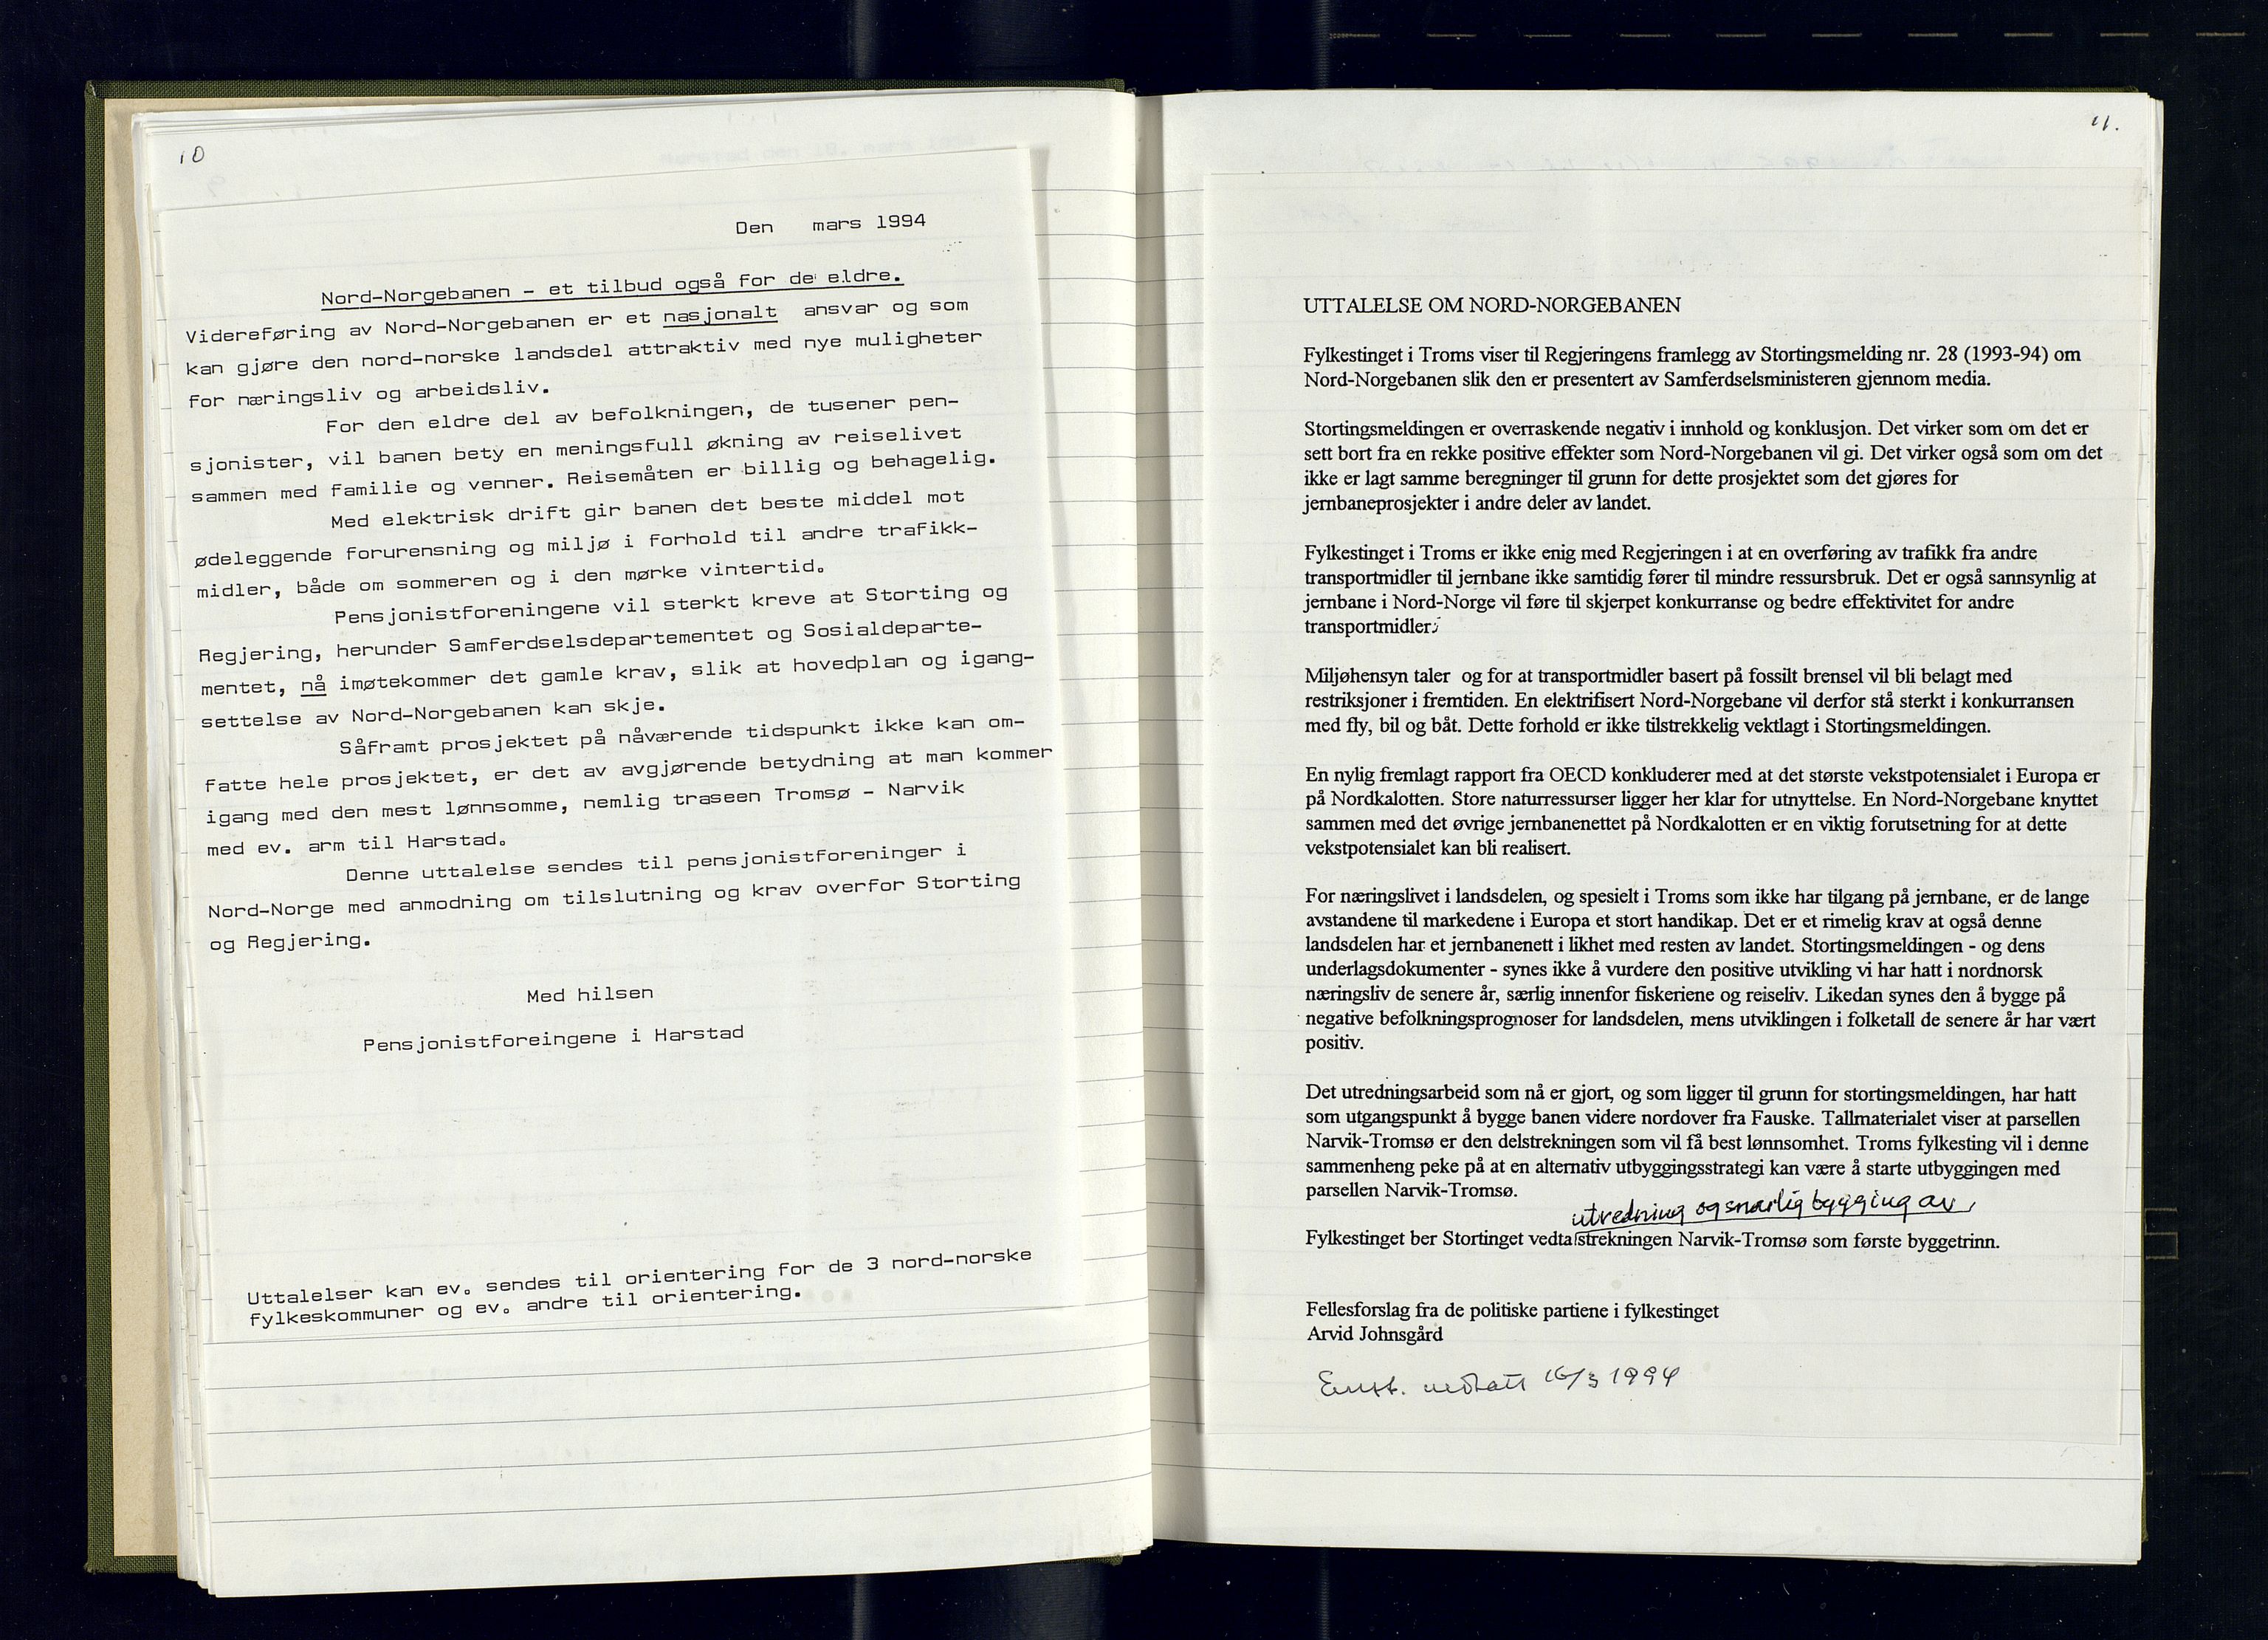 10
Den mars 1994
Nord-Norgebanen - et tilbud også for de eldre.
Videreføring av Nord-Norgebanen er et nasjonalt ansvar og som
kan gjøre den nord-norske landsdel attraktiv med nye muligheter
for næringsliv og arbeidsliv.
For den eldre del av befolkningen, de tusener pen-
sjonister, vil banen bety en meningsfull økning av reiselivet
sammen med familie og venner. Reisemåten er billig og behagelig.
Med elektrisk drift gir banen det beste middel mot
ødeleggende forurensning og miljø i forhold til andre trafikk-
midler, både om sommeren og i den mørke vintertid.
Pensjonistforeningene vil sterkt kreve at Storting og
Regjering, herunder Samferdselsdepartementet og Sosialdeparte-
mentet, nå imøtekommer det gamle krav, slik at hovedplan og igang-
settelse av Nord-Norgebanen kan skje.
Såframt prosjektet på nåværende tidspunkt ikke kan om-
fatte hele prosjektet, er det av avgjørende betydning at man kommer
igang med den mest lønnsomme, nemlig traseen Tromsø - Narvik
med ev. arm til Harstad.
Denne uttalelse sendes til pensjonistforeninger i
Nord-Norge med anmodning om tilslutning og krav overfor Storting
og Regjering.
Med hilsen
Pensjonistforeingene i Harstad
Uttalelser kan ev. sendes til orientering for de 3 nord-norske
fylkeskommuner og ev. andre til orientering.
11.
UTTALELSE OM NORD-NORGEBANEN
Fylkestinget i Troms viser til Regjeringens framlegg av Stortingsmelding nr. 28 (1993-94) om
Nord-Norgebanen slik den er presentert av Samferdselsministeren gjennom media.
Stortingsmeldingen er overraskende negativ i innhold og konklusjon. Det virker som om det er
sett bort fra en rekke positive effekter som Nord-Norgebanen vil gi. Det virker også som om det
ikke er lagt samme beregninger til grunn for dette prosjektet som det gjøres for
jernbaneprosjekter i andre deler av landet.
Fylkestinget i Troms er ikke enig med Regjeringen i at en overføring av trafikk fra andre
transportmidler til jernbane ikke samtidig fører til mindre ressursbruk. Det er også sannsynlig at
jernbane i Nord-Norge vil føre til skjerpet konkurranse og bedre effektivitet for andre
transportmidler.
Miljøhensyn taler og for at transportmidler basert på fossilt brensel vil bli belagt med
restriksjoner i fremtiden. En elektrifisert Nord-Norgebane vil derfor stå sterkt i konkurransen
med fly, bil og båt. Dette forhold er ikke tilstrekkelig vektlagt i Stortingsmeldingen.
En nylig fremlagt rapport fra OECD konkluderer med at det største vekstpotensialet i Europa er
på Nordkalotten. Store naturressurser ligger her klar for utnyttelse. En Nord-Norgebane knyttet
sammen med det øvrige jernbanenettet på Nordkalotten er en viktig forutsetning for at dette
vekstpotensialet kan bli realisert.
For næringslivet i landsdelen, og spesielt i Troms som ikke har tilgang på jernbane, er de lange
avstandene til markedene i Europa et stort handikap. Det er et rimelig krav at også denne
landsdelen har et jernbanenett i likhet med resten av landet. Stortingsmeldingen - og dens
underlagsdokumenter - synes ikke å vurdere den positive utvikling vi har hatt i nordnorsk
næringsliv de senere år, særlig innenfor fiskeriene og reiseliv. Likedan synes den å bygge på
negative befolkningsprognoser for landsdelen, mens utviklingen i folketall de senere år har vært
positiv.
Det utredningsarbeid som nå er gjort, og som ligger til grunn for stortingsmeldingen, har hatt
som utgangspunkt å bygge banen videre nordover fra Fauske. Tallmaterialet viser at parsellen
Narvik-Tromsø er den delstrekningen som vil få best lønnsomhet. Troms fylkesting vil i denne
sammenheng peke på at en alternativ utbyggingsstrategi kan være å starte utbyggingen med
parsellen Narvik-Tromsø.
utredning og snarlig bygging av
Fylkestinget ber Stortinget vedta strekningen Narvik-Tromsø som første byggetrinn.
Fellesforslag fra de politiske partiene i fylkestinget
Arvid Johnsgård
Enst. vedtatt 16/3 1994